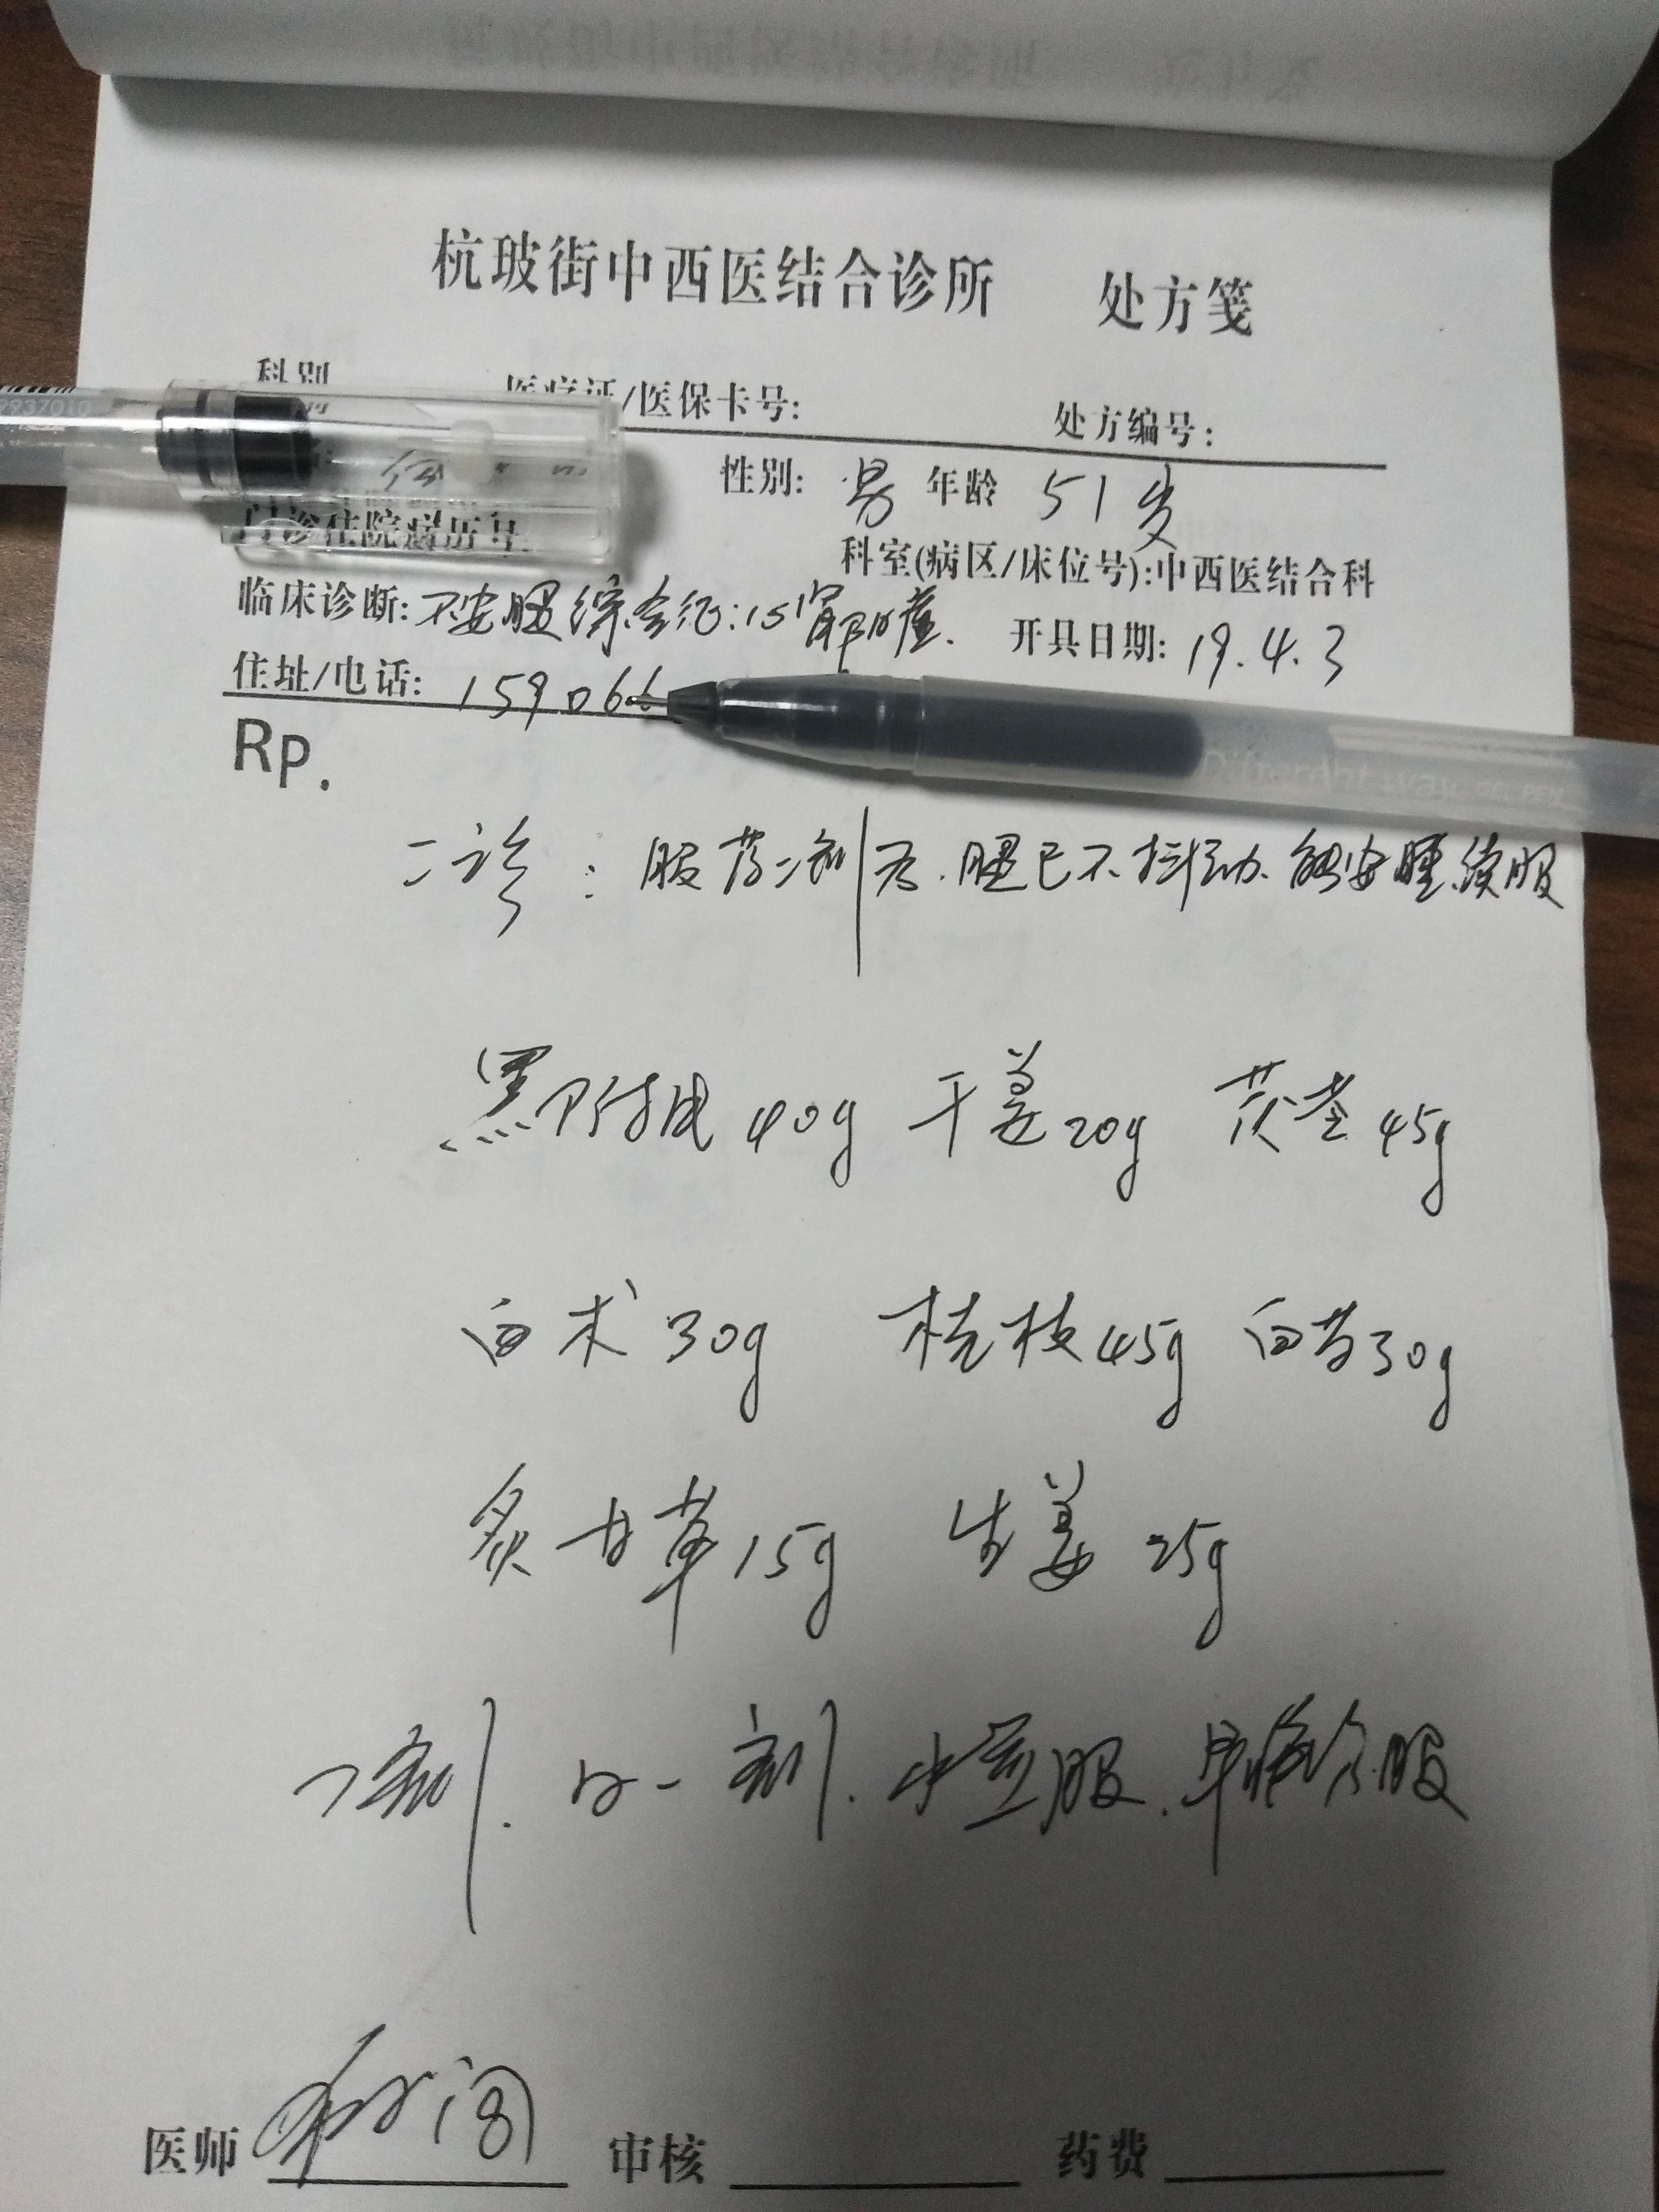 杭玻街中西医结合诊所 处方笺
科别 医疗证/医保卡号: 处方编号:
性别: 男 年龄 51岁
门诊住院病历号
科室(病区/床位号):中西医结合科
临床诊断: 不安腿综合征: 开具日期: 19.4.3
住址/电话: 159066
Rp.
二诊: 服药二剂后.腿已不抖动.能安睡.续服
黑附片40g 干姜20g 茯苓45g
白术30g 桂枝45g 白芍30g
炙甘草15g 生姜25g
剂.日一剂.水煎服.早晚分服
医师 审核 药费
Different way GEL PEN
937010